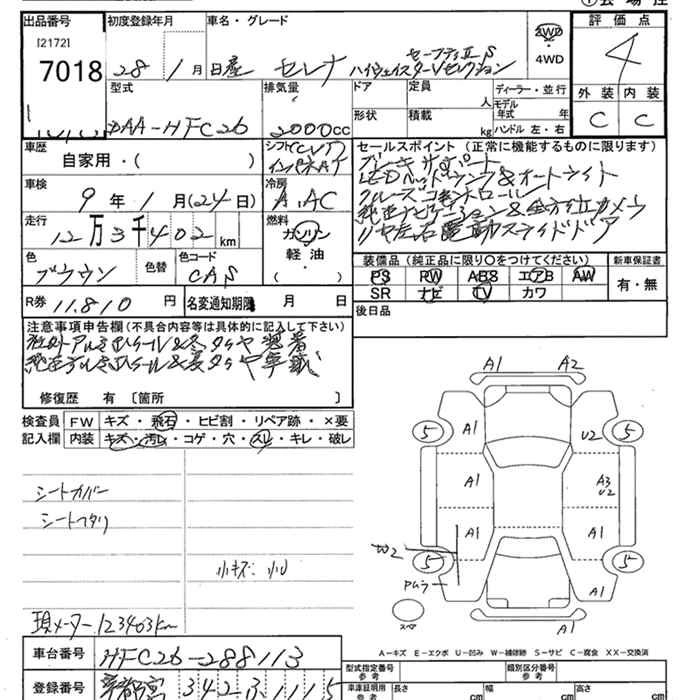 出品番号
[2172]
7018
初度登録年月
28 / 1 月
車名・グレード
日産 セレナ ハイウェイスターVセレクション
セーフティⅡ S
2WD
・
4WD
評価点
4
外装 内装
C C
型式
DAA-HFC26
排気量
2000cc
ドア
形状
定員
人
積載
kg
ディーラー・並行
モデル年式 年
ハンドル 左・右
車歴
自家用・( )
シフト CVT
インパネAT
車検
9 年 1 月 (24日)
冷房
A.AC
走行
12万3千402km
燃料
ガソリン
軽油
( )
色
ブラウン
色替
色コード
CAS
R券 11.810 円
名変通知期限 月 日
セールスポイント (正常に機能するものに限ります)
ブレーキサポート
LEDヘッドランプ&オートライト
クルーズコントロール
純正ナビゲーション&全方位カメラ
リヤ左右電動スライドドア
装備品 (純正品に限り○をつけてください)
PS RW ABS エアB AW
SR ナビ TV カワ
新車保証書
有・無
後日品
注意事項申告欄 (不具合内容等は具体的に記入して下さい)
社外アルミホイール&冬タイヤ装着
純正アルミホイール&夏タイヤ車載
修復歴 有 〔箇所 〕
検査員記入欄
FW キズ・飛石・ヒビ割・リペア跡・×要
内装 キズ・汚レ・コゲ・穴・スレ・キレ・破レ
シートカバー
シートヘタリ
小キズ:小U
現メーター123403km
A1 A2
5 A1 U2 5
A1 A3
U2
A1 A1
W2
5 A1 5
PMラー
A1
スペア
A1
A-キズ E-エクボ U-凹み W-補修跡 S-サビ C-腐食 XX-交換済
車台番号 HFC26-288113
登録番号 宇都宮 342
型式指定番号
参考
類別区分番号
参考
車庫証明用
参考
長さ cm
幅 cm
高さ cm